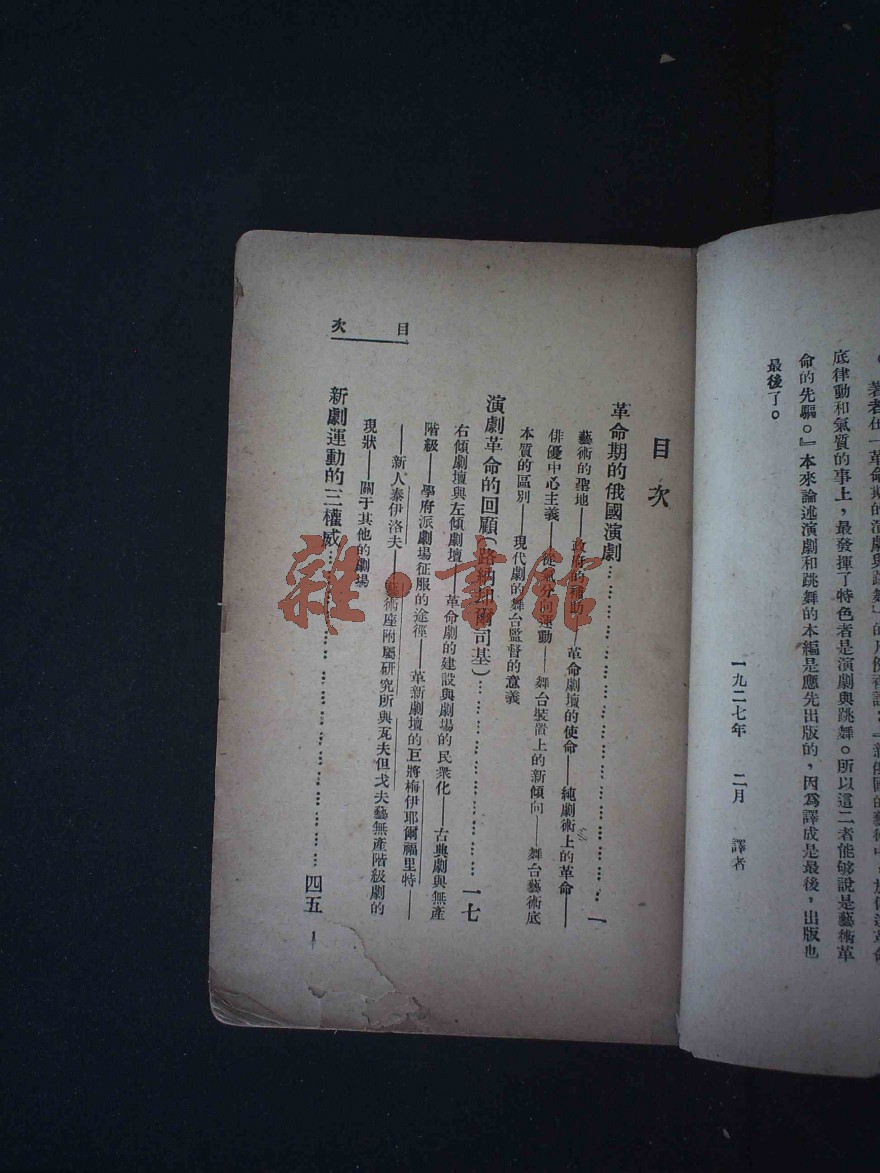 底律動和氣質的事上，最發揮了特色者是演劇與跳舞。所以這二者能够說是藝術革
命的先驅。』本來論述演劇和跳舞的本編是應先出版的，因爲譯成是最後，出版也
最後了。
一九二七年　二月　譯者
目次
革命期的俄國演劇……一
藝術的聖地——政府的補助——革命劇壇的使命——純劇術上的革命——
俳優中心主義——從氣分向運動——舞台裝置上的新傾向——舞台藝術底
本質的區別——現代劇的舞台監督的意義
演劇革命的回顧（路納却爾司基）……一七
右傾劇壇與左傾劇壇——革命劇的建設與劇場的民衆化——古典劇與無產
階級——學府派劇場征服的途徑——革新劇壇的巨將梅伊耶爾福里特——
——新人泰伊洛夫——藝術座附屬研究所與瓦夫但戈夫藝無產階級劇的
現狀——關于其他的劇場
新劇運動的三權威……四五
目次
1
雜·書館